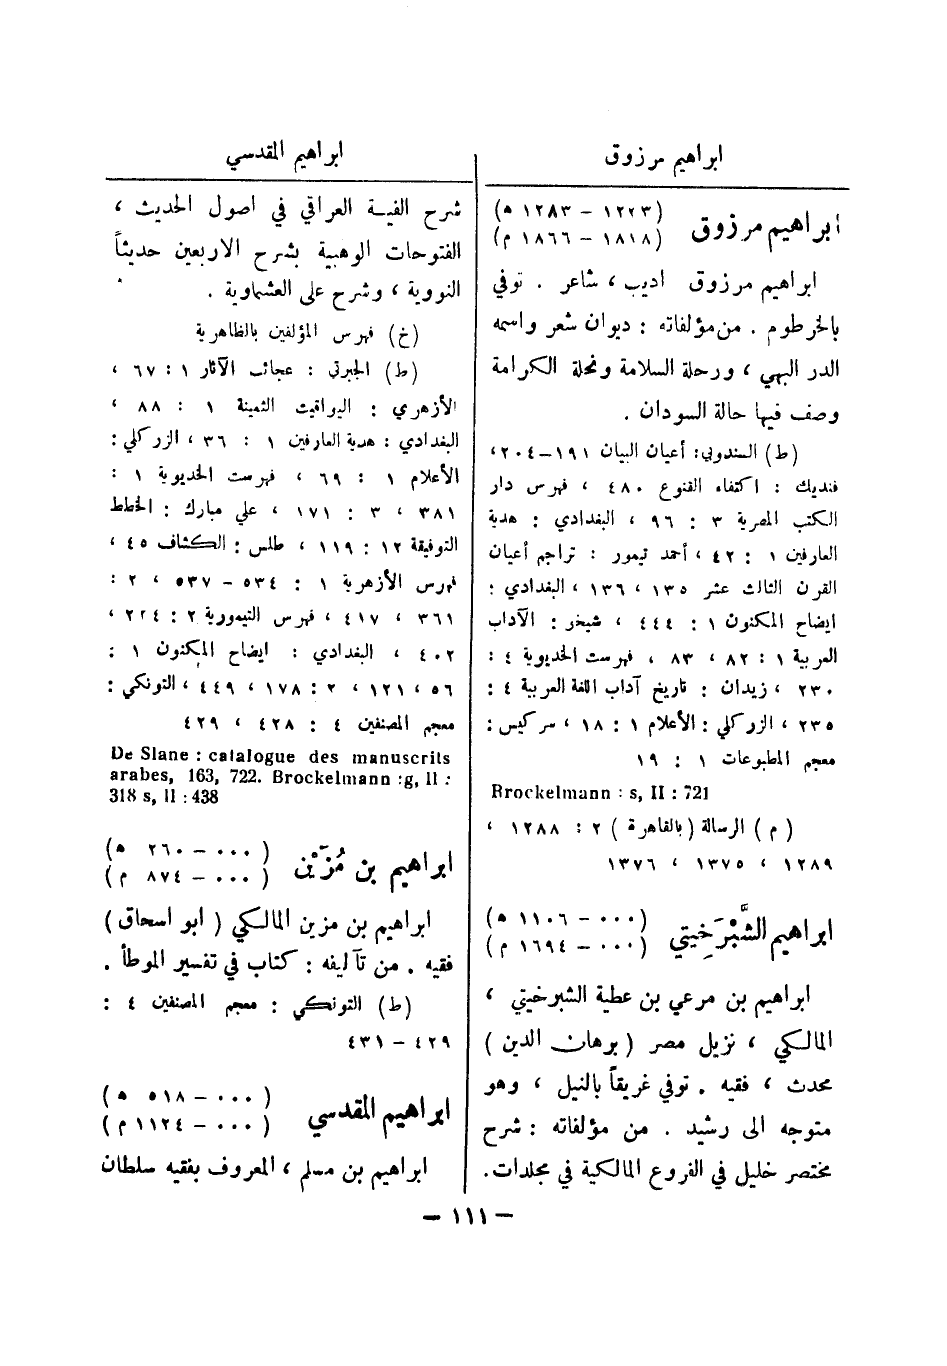 ابراهيم مرزوق
ابراهيم مرزوق (١٢٢٣ – ١٢٨٣ ه)
(١٨١٨ – ١٨٦٦ م)
ابراهيم مرزوق اديب ، شاعر . توفي
بالخرطوم . من مؤلفاته : ديوان شعر واسمه
الدر البهي ، ورحلة السلامة ونحلة الكرامة
وصف فيها حالة السودان .
(ط) السندوبي : أعيان البيان ١٩١–٢٠٤ ،
فنديك : اكتفاء القنوع ٤٨٠ ، فهرس دار
الكتب المصرية ٣ : ٩٦ ، البغدادي : هدية
العارفين ١ : ٤٢ ، أحمد تيمور : تراجم أعيان
القرن الثالث عشر ١٣٥ ، ١٣٦ ، البغدادي :
ايضاح المكنون ١ : ٤٤٤ ، شيخو : الآداب
العربية ١ : ٨٢ ، ٨٣ ، فهرست الخديوية ٤ :
٢٣٠ ، زيدان : تاريخ آداب اللغة العربية ٤ :
٢٣٥ ، الزركلي : الأعلام ١ : ١٨ ، سركيس :
معجم المطبوعات ١ : ١٩
Brockelmann : s, II : 721
(م) الرسالة (بالقاهرة) ٢ : ١٢٨٨ ،
١٢٨٩ ، ١٣٧٥ ، ١٣٧٦
ابراهيم الشَّبْرَخِيتي (٠٠٠ – ١١٠٦ ه)
(٠٠٠ – ١٦٩٤ م)
ابراهيم بن مرعي بن عطية الشبرخيتي ،
المالكي ، نزيل مصر (برهان الدين)
محدث ، فقيه . توفي غريقاً بالنيل ، وهو
متوجه الى رشيد . من مؤلفاته : شرح
مختصر خليل في الفروع المالكية في مجلدات .
ابراهيم المقدسي
شرح الفية العراقي في اصول الحديث ،
الفتوحات الوهبية بشرح الاربعين حديثاً
النووية ، وشرح على العشماوية .
(خ) فهرس المؤلفين بالظاهرية
(ط) الجبرتي : عجائب الآثار ١ : ٦٧ ،
الأزهري : اليواقيت الثمينة ١ : ٨٨ ،
البغدادي : هدية العارفين ١ : ٣٦ ، الزركلي :
الأعلام ١ : ٦٩ ، فهرست الخديوية ١ :
٣٨١ ، ٣ : ١٧١ ، علي مبارك : الخطط
التوفيقة ١٢ : ١١٩ ، طلس : الكشاف ٤٥ ،
فهرس الأزهرية ١ : ٥٣٤ – ٥٣٧ ، ٢ :
٣٦١ ، ٤١٧ ، فهرس التيمورية ٢ : ٢٢٤ ،
٤٠٢ ، البغدادي : ايضاح المكنون ١ :
٥٦ ، ١٢١ ، ٢ : ١٧٨ ، ٤٤٩ ، التونكي :
معجم المصنفين ٤ : ٤٢٨ ، ٤٢٩
De Slane : catalogue des manuscrits
arabes, 163, 722. Brockelmann :g, II :
318 s, II : 438
ابراهيم بن مُزَيْن (٠٠٠ – ٢٦٠ ه)
(٠٠٠ – ٨٧٤ م)
ابراهيم بن مزين المالكي (ابو اسحاق)
فقيه . من تآليفه : كتاب في تفسير الموطأ .
(ط) التونكي : معجم المصنفين ٤ :
٤٢٩ – ٤٣١
ابراهيم المقدسي (٠٠٠ – ٥١٨ ه)
(٠٠٠ – ١١٢٤ م)
ابراهيم بن مسلم ، المعروف بفقيه سلطان
– ١١١ –